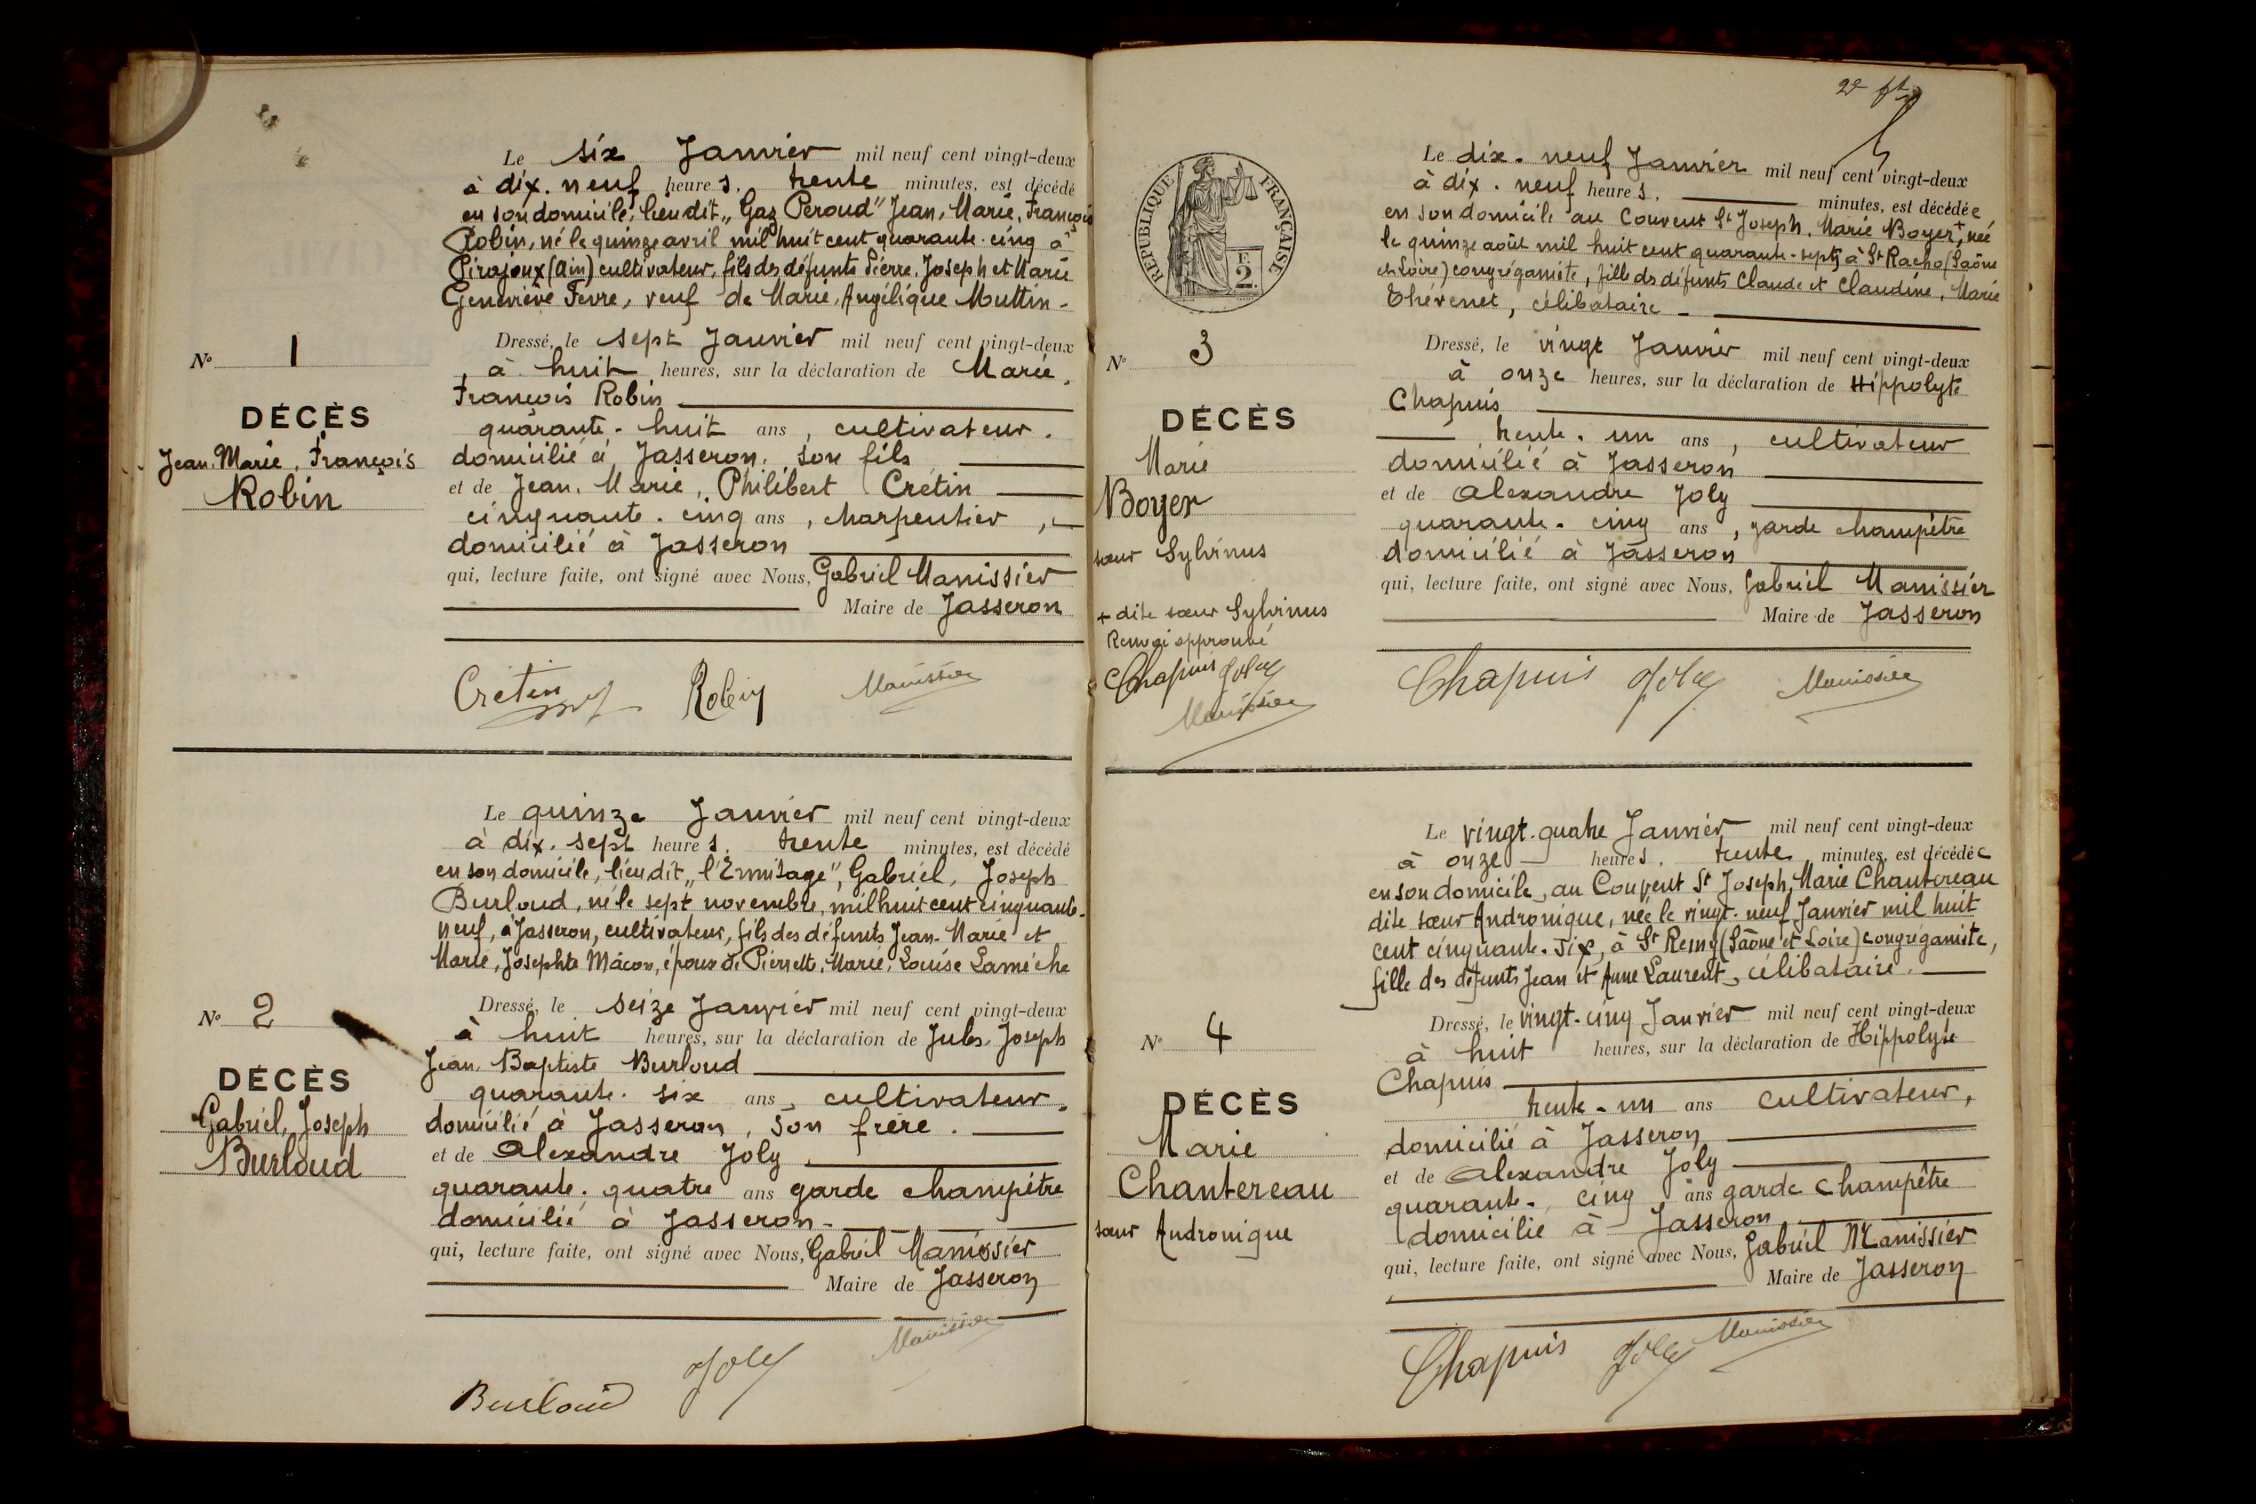 Le six Janvier mil neuf cent vingt-deux
à dix-neuf heures, trente minutes, est décédé
en son domicile, lieu dit „Gaz Peroud" Jean, Marie, François
Robin, né le quinze avril mil huit cent quarante-cinq à
Pirajoux (Ain) cultivateur, fils des défunts Pierre, Joseph et Marie
Geneviève Fevre, veuf de Marie, Angélique Muttin -
Dressé, le sept Janvier mil neuf cent vingt-deux
à huit heures, sur la déclaration de Marie,
François Robin
quarante-huit ans, cultivateur,
domicilié à Jasseron, son fils
et de Jean, Marie, Philibert Crétin
cinquante-cinq ans, charpentier,
domicilié à Jasseron
qui, lecture faite, ont signé avec Nous, Gabriel Manissier
Maire de Jasseron
Nº 1
DÉCÈS
Jean, Marie, François
Robin
Crétin Robin Manissier
Le quinze Janvier mil neuf cent vingt-deux
à dix-sept heures, trente minutes, est décédé
en son domicile, lieu dit „l'Ermitage", Gabriel, Joseph
Burloud, né le sept novembre, mil huit cent cinquante-
neuf, à Jasseron, cultivateur, fils des défunts Jean-Marie et
Marie, Josephte Mâcon, époux de Pierrette, Marie, Louise Lamèche
Dressé, le seize Janvier mil neuf cent vingt-deux
à huit heures, sur la déclaration de Jules, Joseph
Jean, Baptiste Burloud
quarante-six ans, cultivateur,
domicilié à Jasseron, son frère.
et de Alexandre Joly
quarante-quatre ans garde champêtre
domicilié à Jasseron -
qui, lecture faite, ont signé avec Nous, Gabriel Manissier
Maire de Jasseron
Nº 2
DÉCÈS
Gabriel, Joseph
Burloud
Burloud Joly Manissier
2e ft
RÉPUBLIQUE FRANÇAISE
F.
2.
Le dix-neuf Janvier mil neuf cent vingt-deux
à dix-neuf heures, minutes, est décédée
en son domicile au Couvent St Joseph, Marie Boyer+, née
le quinze août mil huit cent quarante-sept, à St Racho (Saône
et Loire) congréganiste, fille des défunts Claude et Claudine, Marie
Thévenet, célibataire -
Dressé, le vingt Janvier mil neuf cent vingt-deux
à onze heures, sur la déclaration de Hippolyte
Chapuis
trente-un ans, cultivateur
domicilié à Jasseron
et de Alexandre Joly
quarante-cinq ans, garde champêtre
domicilié à Jasseron
qui, lecture faite, ont signé avec Nous, Gabriel Manissier
Maire de Jasseron
Nº 3
DÉCÈS
Marie
Boyer
sœur Sylvinus
+ dite sœur Sylvinus
Renvoi approuvé
Chapuis Joly
Manissier
Chapuis Joly Manissier
Le vingt-quatre Janvier mil neuf cent vingt-deux
à onze heures, trente minutes, est décédée
en son domicile, au Couvent St Joseph, Marie Chantereau
dite sœur Andronique, née le vingt-neuf Janvier mil huit
cent cinquante-six, à St Remy (Saône et Loire) congréganiste,
fille des défunts Jean et Anne Laurent, célibataire.
Dressé, le vingt-cinq Janvier mil neuf cent vingt-deux
à huit heures, sur la déclaration de Hippolyte
Chapuis
trente-un ans cultivateur,
domicilié à Jasseron
et de Alexandre Joly
quarante-cinq ans garde champêtre
domicilié à Jasseron
qui, lecture faite, ont signé avec Nous, Gabriel Manissier
Maire de Jasseron
Nº 4
DÉCÈS
Marie
Chantereau
sœur Andronique
Chapuis Joly Manissier